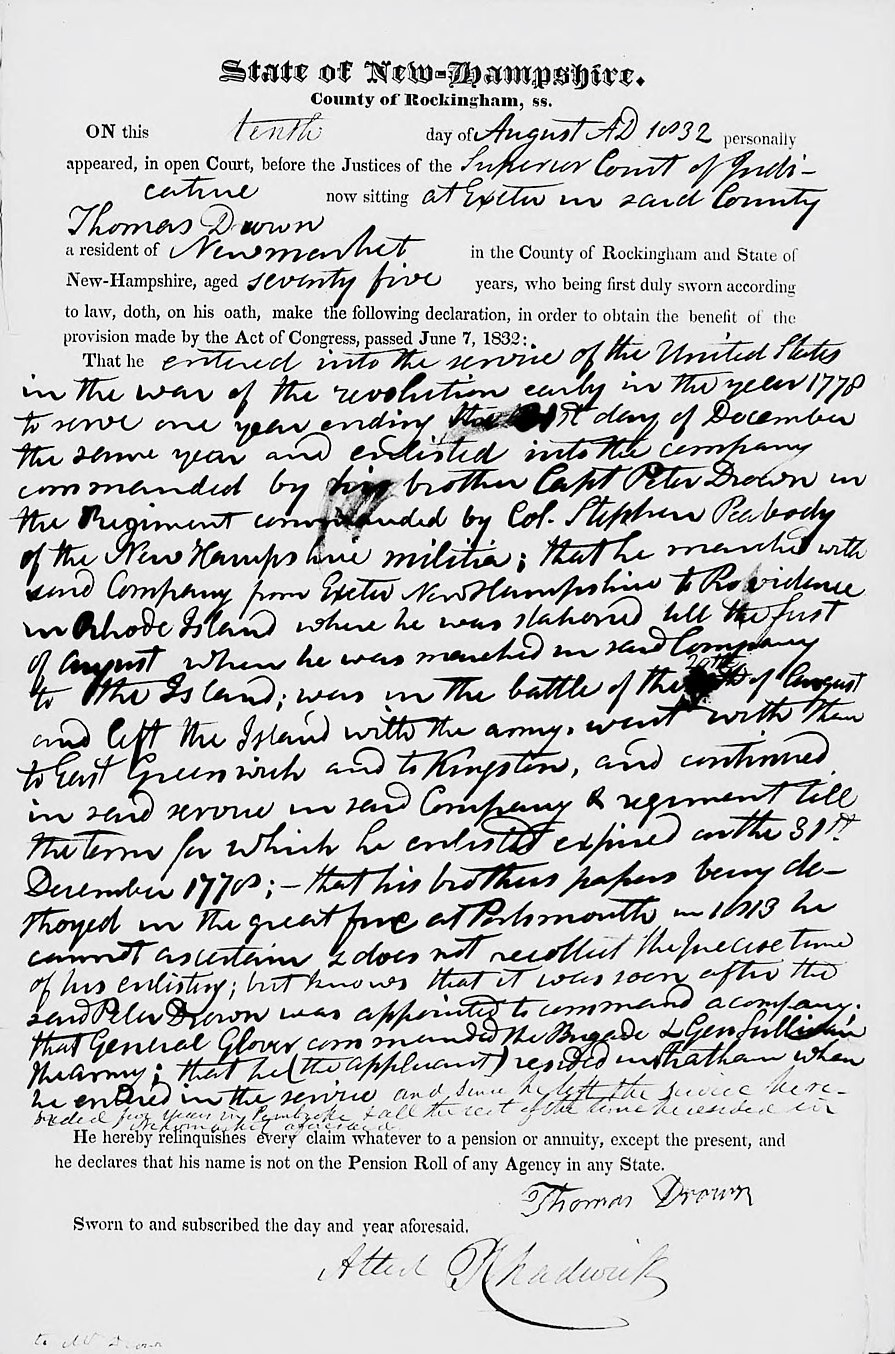 State of New-Hampshire.
County of Rockingham, ss.
ON this tenth day of August AD 1832 personally
appeared, in open Court, before the Justices of the Superior Court of Judi-
cature now sitting at Exeter in said County
Thomas Drown
a resident of Newmarket in the County of Rockingham and State of
New-Hampshire, aged seventy five years, who being first duly sworn according
to law, doth, on his oath, make the following declaration, in order to obtain the benefit of the
provision made by the Act of Congress, passed June 7, 1832:
That he entered into the service of the United States
in the war of the revolution early in the year 1778
to serve one year ending the 31st day of December
the same year and enlisted into the company
commanded by his brother Capt Peter Drown in
the Regiment commanded by Col. Stephen Peabody
of the New Hampshire militia; that he marched with
said Company from Exeter New Hampshire to Providence
in Rhode Island where he was stationed till the first
of august when he was marched in said Company
to the Island; was in the battle of the 29th of August
and left the Island with the army. went with them
to East Greenwich and to Kingston, and continued
in said service in said Company & regiment till
the term for which he enlisted expired on the 31st.
December 1778; - that his brothers papers being de-
stroyed in the great fire at Portsmouth in 1813 he
cannot ascertain & does not recollect the precise time
of his enlisting; but knows that it was soon after the
said Peter Drown was appointed to command a company.
that General Glover commanded the Brigade & Gen Sullivan
the army; that he (the applicant) resided in Stratham when
he entered in the service and since he left the service he re-
sided five years in Pembroke & all the rest of the time he resided in
Newmarket aforesaid.
He hereby relinquishes every claim whatever to a pension or annuity, except the present, and
he declares that his name is not on the Pension Roll of any Agency in any State.
Thomas Drown
Sworn to and subscribed the day and year aforesaid.
Attest P Chadwick
to Mr Drown